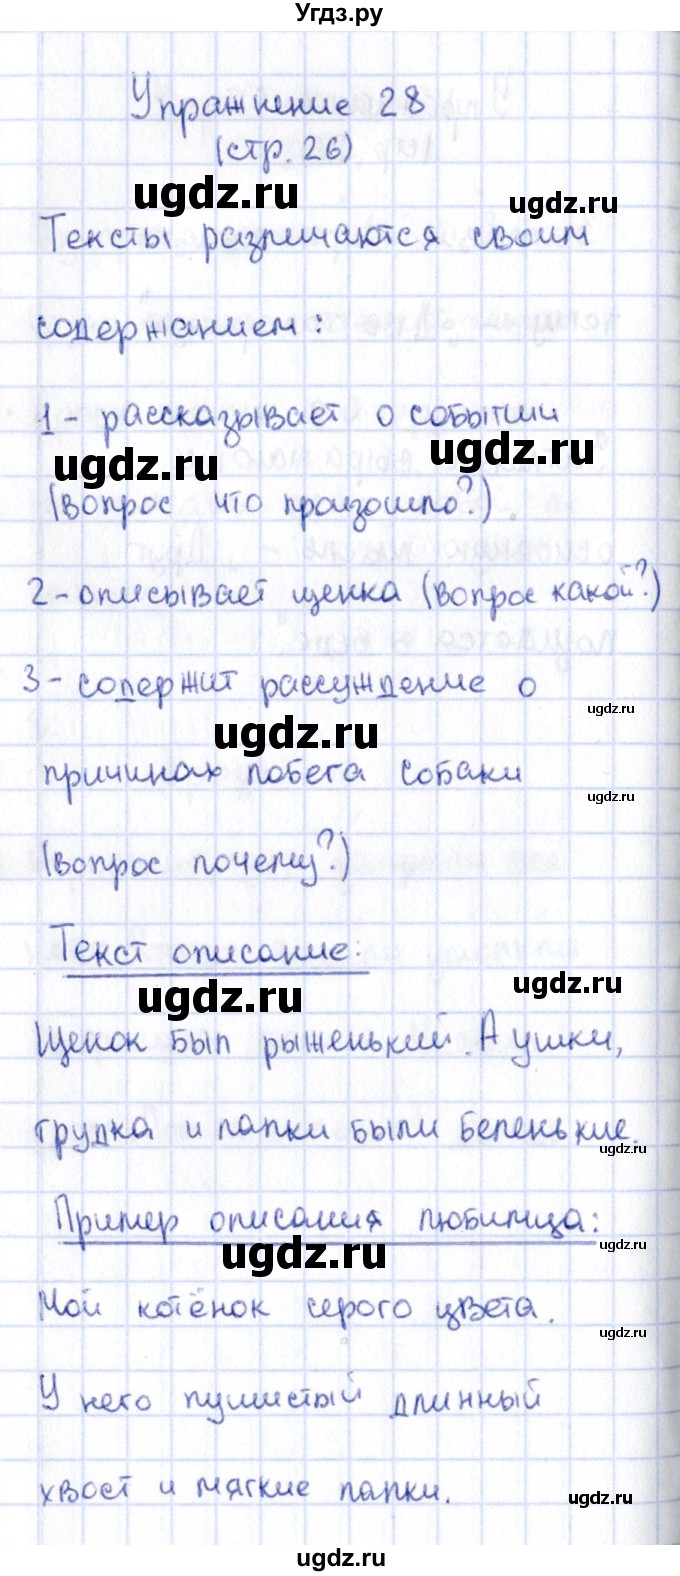 Угдз.ру
Упражнение 28
(стр. 26)
ugdz.ru
ugdz.ru
Тексты различаются своим
содержанием:
1 - рассказывает о событии
ugdz.ru
ugdz.ru
(вопрос что произошло?)
2 - описывает щенка (вопрос какой?)
3 - содержит рассуждение о
ugdz.ru
ugdz.ru
причинах побега собаки
ugdz.ru
(вопрос почему?)
Текст описание:
ugdz.ru
ugdz.ru
Щенок был рыженький. А ушки,
грудка и лапки были беленькие.
ugdz.ru
Пример описания любимца:
ugdz.ru
ugdz.ru
Мой котёнок серого цвета.
ugdz.ru
У него пушистый длинный
хвост и мягкие лапки.
ugdz.ru
ugdz.ru